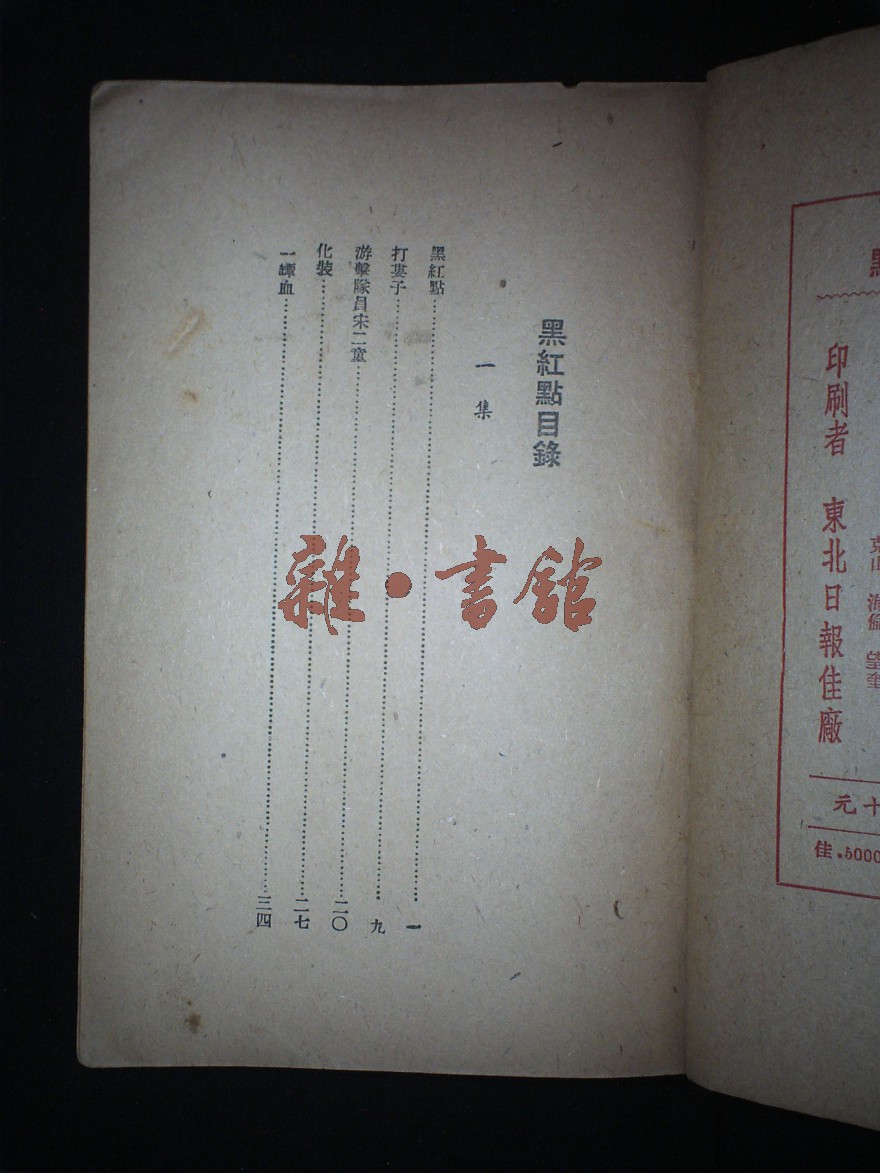 黑紅點目錄
一集
黑紅點……一
打妻子……九
游擊隊員宋二童……二〇
化裝……二七
一罈血……三四
雜•書館
印刷者 東北日報佳廠
十元
佳.5000